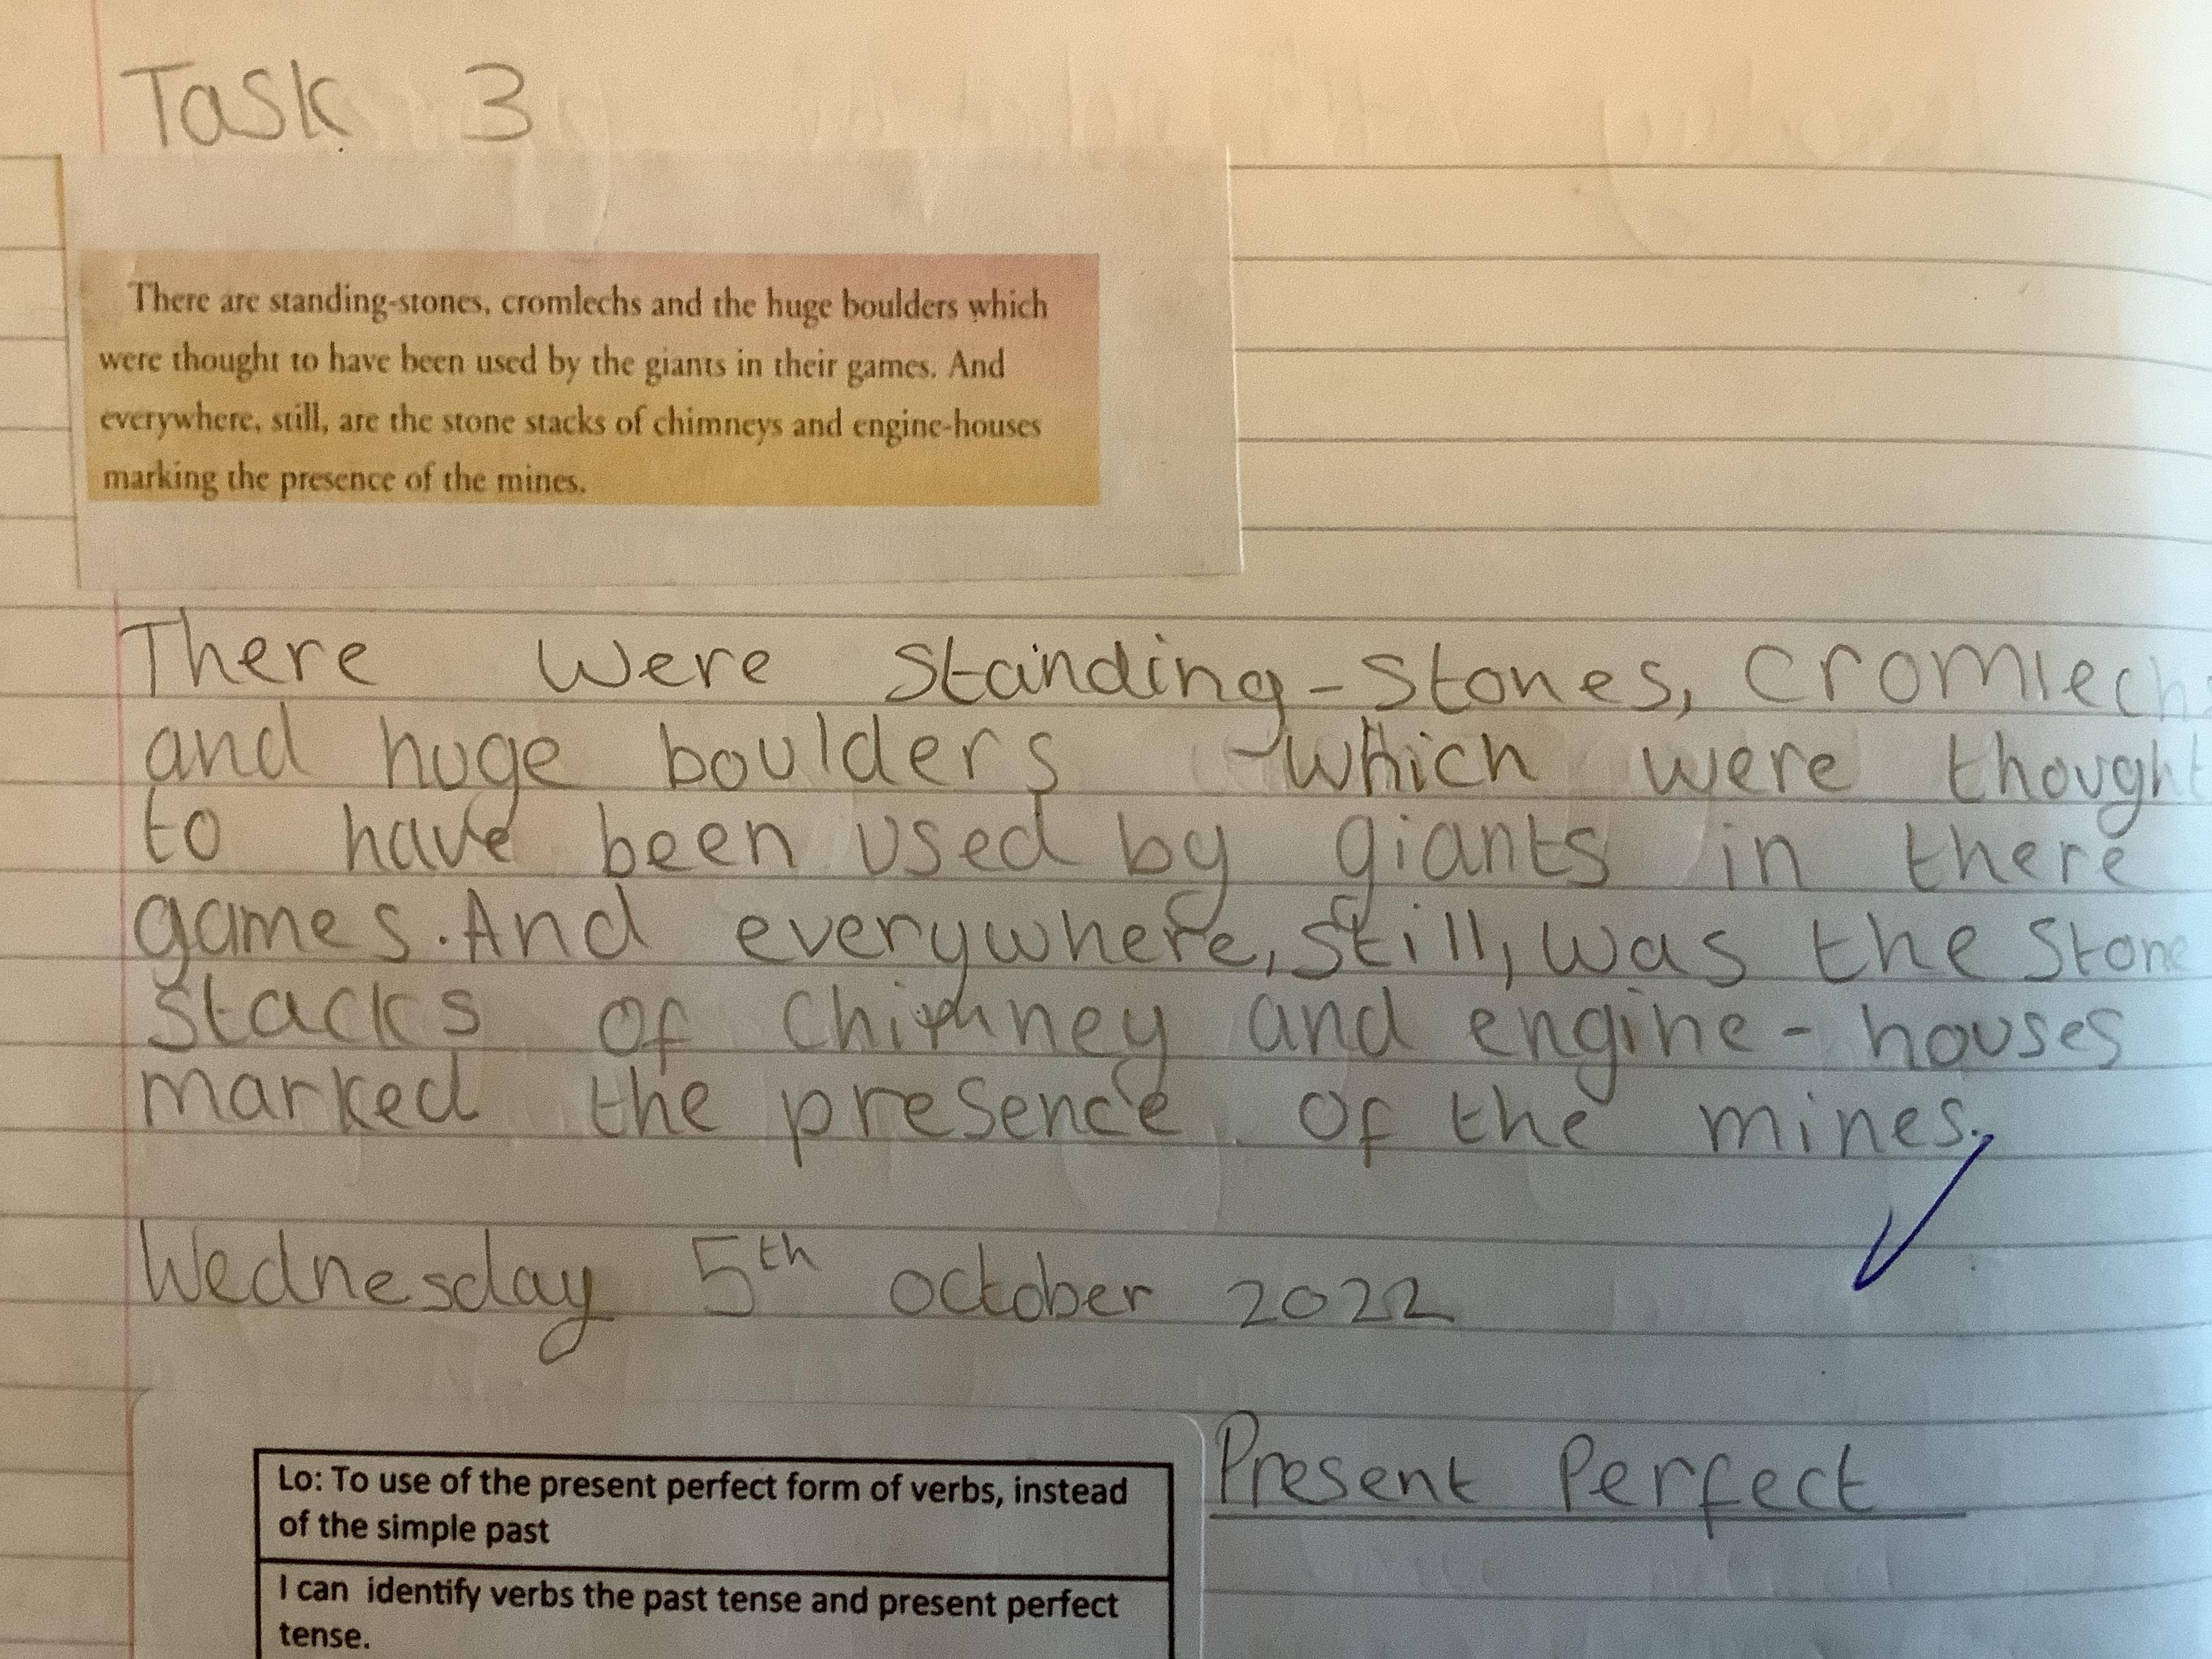 Task 3
There are standing-stones, cromlechs and the huge boulders which
were thought to have been used by the giants in their games. And
everywhere, still, are the stone stacks of chimneys and engine-houses
marking the presence of the mines.
There were standing-stones, cromlechs
and huge boulders which were thought
to have been used by giants in there
games. And everywhere, still, was the stone
stacks of chimney and engine-houses
marked the presence of the mines.
Wednesday 5th october 2022
Present Perfect
Lo: To use of the present perfect form of verbs, instead
of the simple past
I can identify verbs the past tense and present perfect
tense.